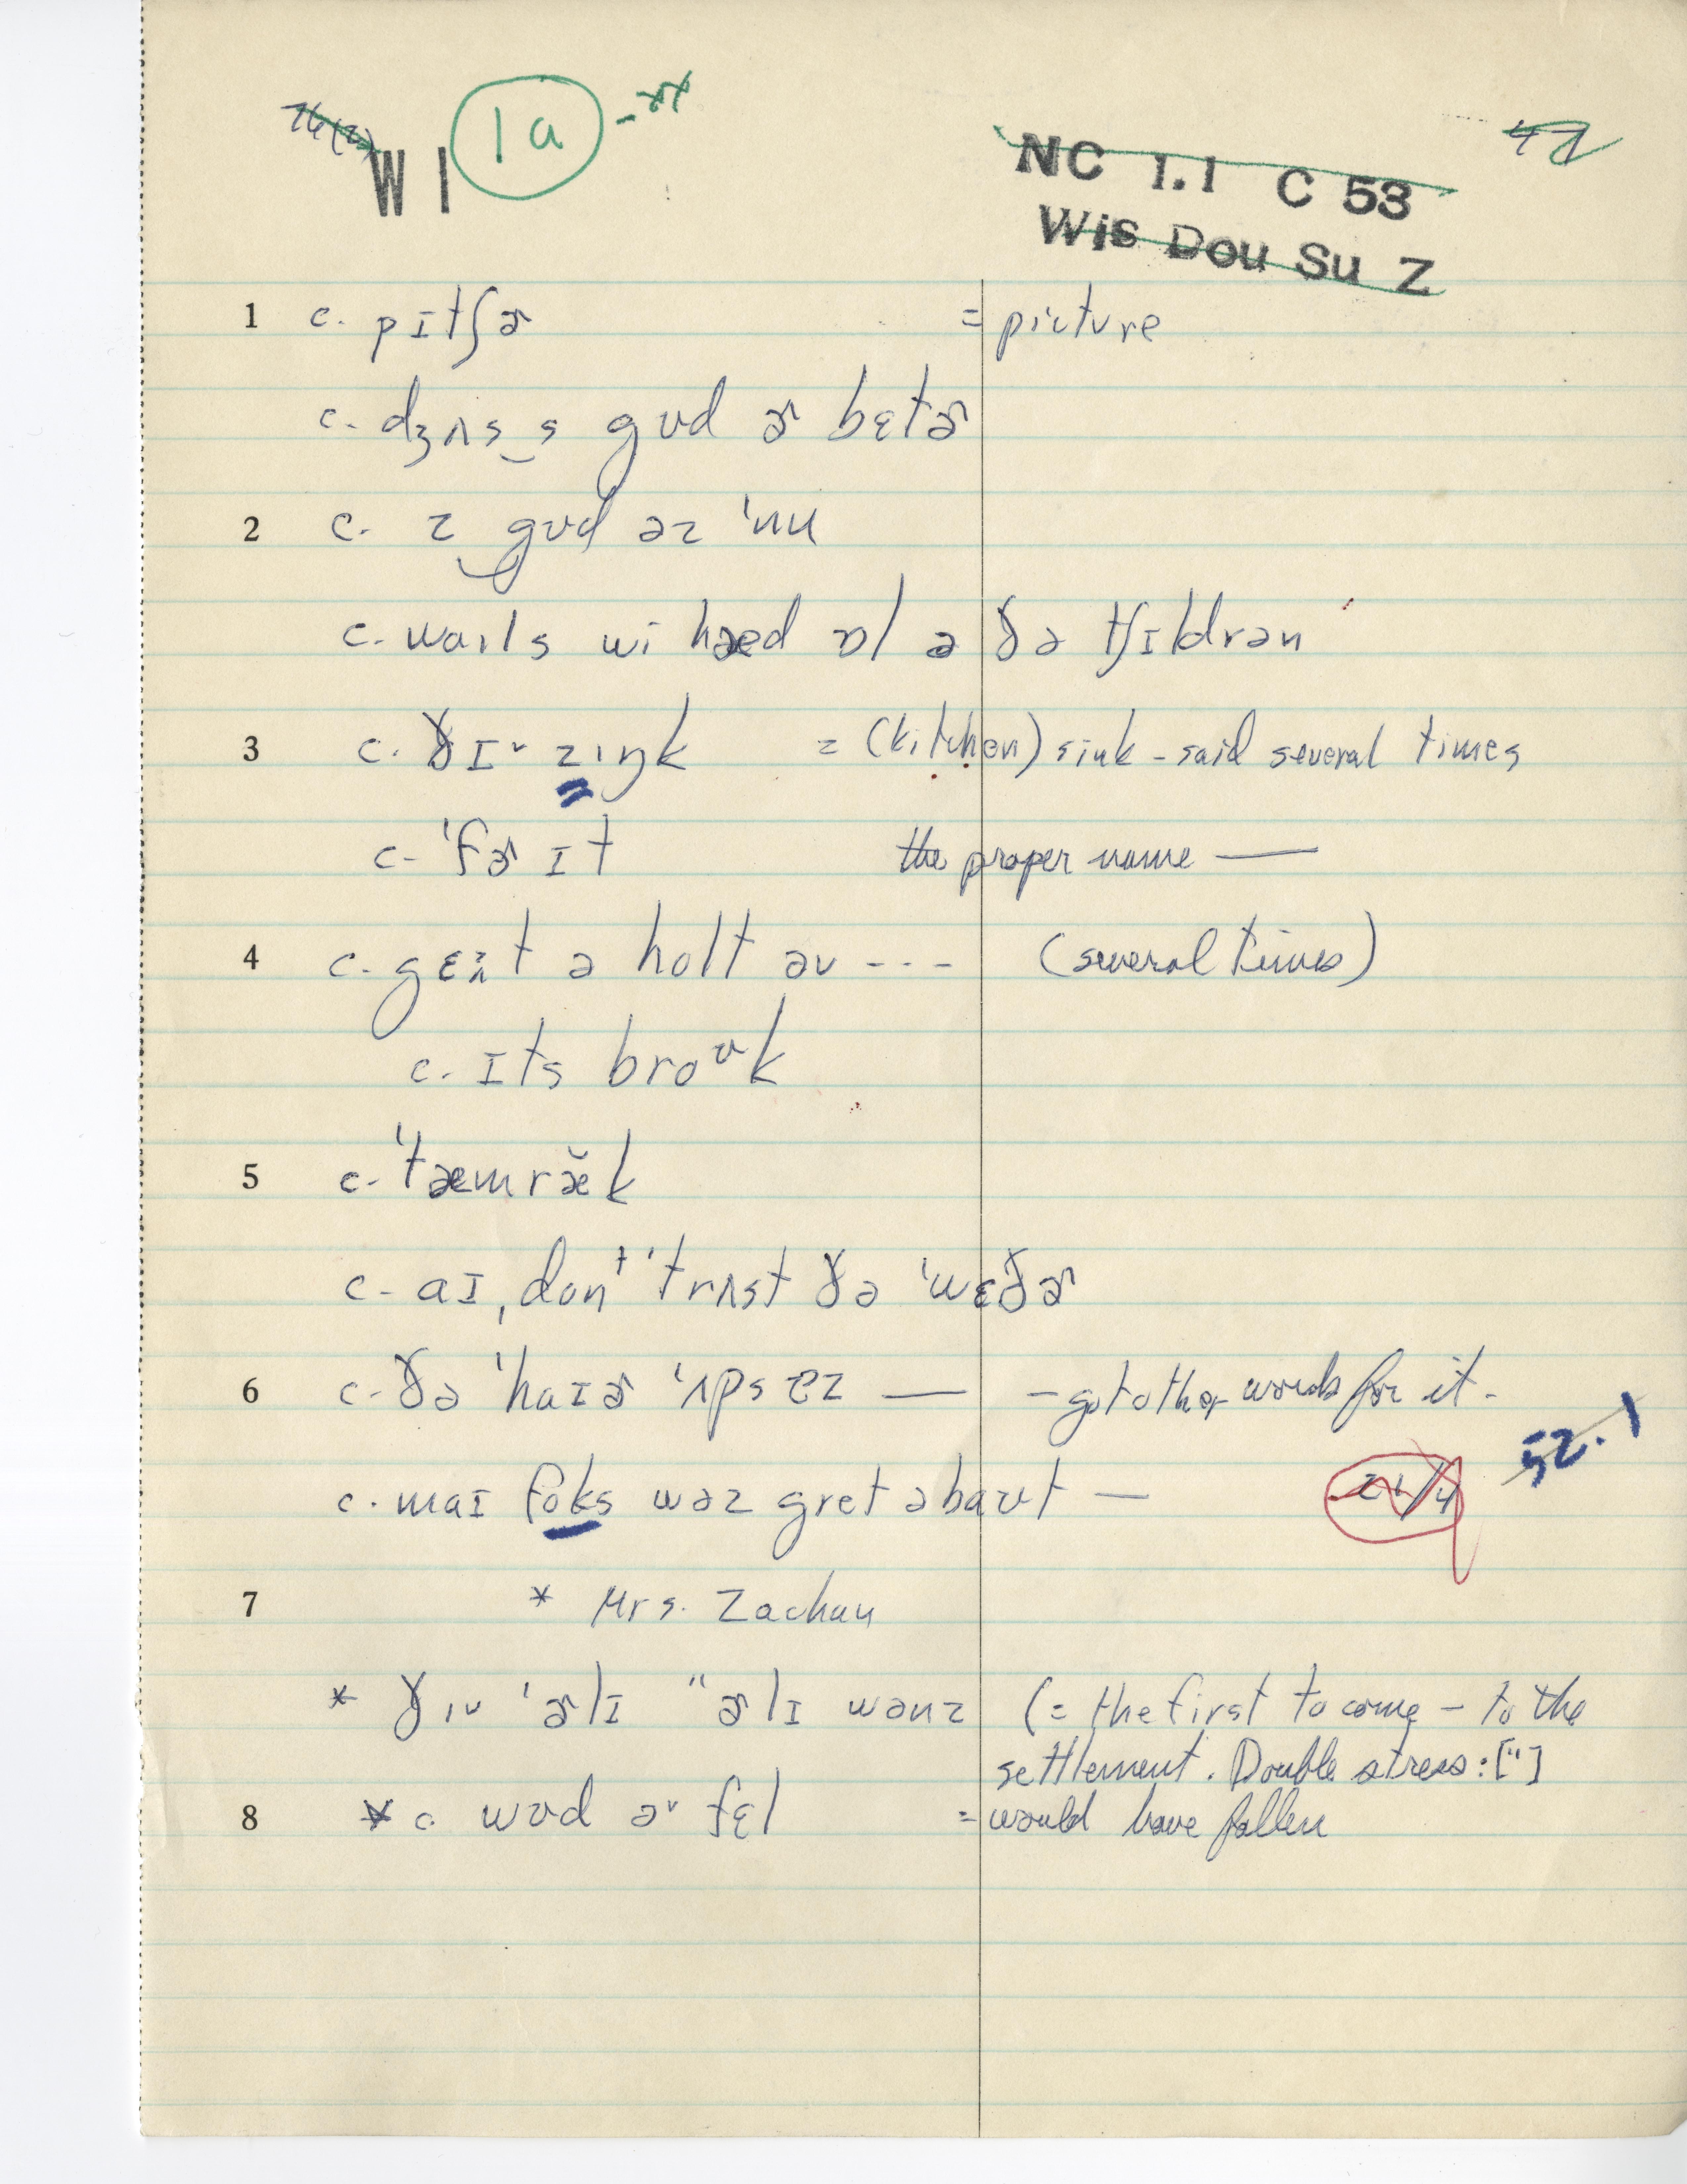 WI 1a
NC 1.1 C 53
Wis Dou Su Z
1 c. pɪtʃɚ = picture
c. dʒʌs‿s gʊd ɚ bɛtɚ
2 c. z‿gʊd əz ˈnu
c. waɪls wi hæd ɒl ə ðə tʃɪldrən
3 c. ðɪˇ zɪŋk = (kitchen) sink - said several times
c- ˈfɚ ɪt the proper name —
4 c. a holt əv --- (several times)
c. ɪts broᶷk
5 c- ˈtæmræ̆k
c- aɪ ˌdonᵗ ˈtrʌst ðə ˈwɛðɚ
6 c- ðə ˈhaɪɚ ˈʌps — - got other words for it -
52.1
c. maɪ foks wəz gret əbaʊt —
7 * Mrs. Zachau
* ðɪˇ ˈɚlɪ "ɚlɪ wənz (= the first to come - to the
settlement. Double stress: ["]
8 * c. wʊd əˇ fɛl = would have fallen